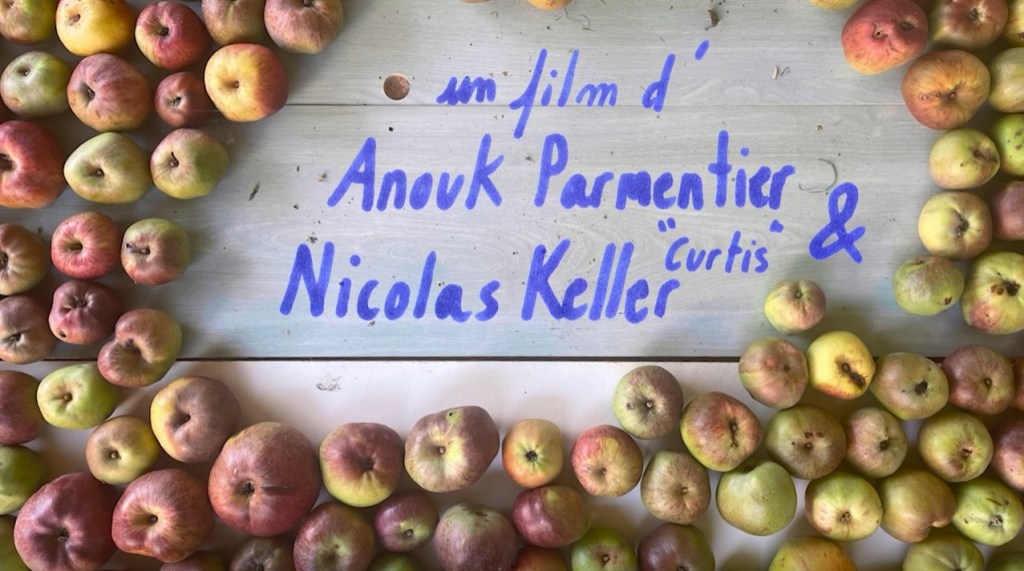 un film d'
Anouk Parmentier &
Nicolas Keller "Curtis"